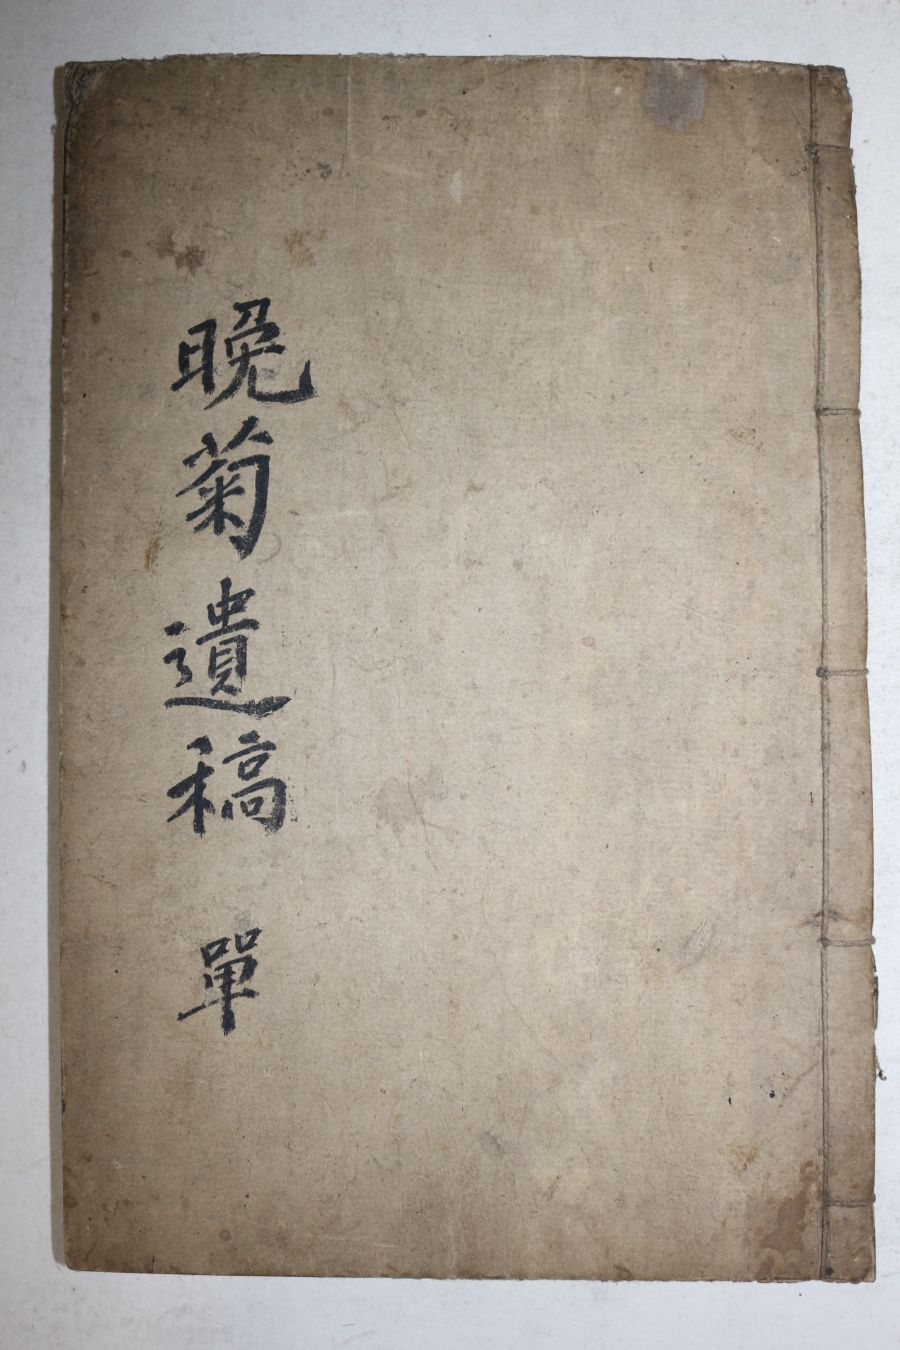 晚菊遺稿 單